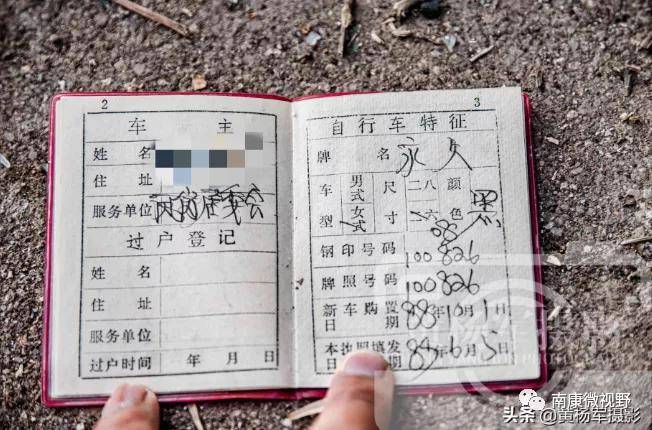 2
车 主
姓 名
住 址
服务单位 居委会
过户登记
姓 名
住 址
服务单位
过户时间 年 月 日
3
自行车特征
牌 名 永久
车型 男式 女式 尺寸 二八 二六 颜色 黑
钢印号码 100826
牌照号码 100826
新车购置日期 88年10月1日
本执照填发日期 89年6月5日
南康微视野
头条 @黄杨军摄影